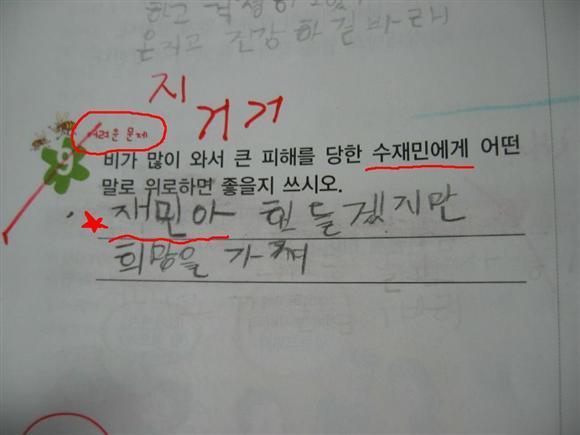 온지고 건강 하길 바래
지
거거
어려운 문제
9
비가 많이 와서 큰 피해를 당한 수재민에게 어떤
말로 위로하면 좋을지 쓰시오.
재민아 힘들겠지만
희망을 가져